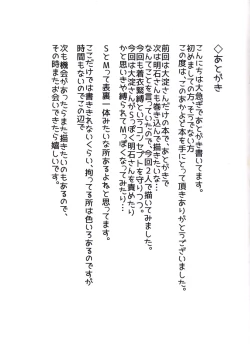 ◇あとがき
こんにちは大急ぎであとがき書いてます。
初めましての方、そうでない方
この度は、「このおかよびわ本を手にとって頂きありがとうございました。
前回は大淀さんだけの本で、あとがきで
次は明石さんも巻き込んで描きたいな…
なんてことを言っていたので、今回2人で描いてみました。
今回も着衣緊縛というコンセプトを守りつつ。
今回は大淀さんがとっぽく明石さんを責めたり
かと思いきや縛られてMっぽくなってみたり…
SとMって表裏一体みたいな所あるよねと思ってます。
ここだけでは書ききれないくらい、拘ってる所は色いろあるのですが
時間もないのでこの辺で
次も機会があったらまた描きたいのもあるので、
その時またお会いできたら嬉しいです。